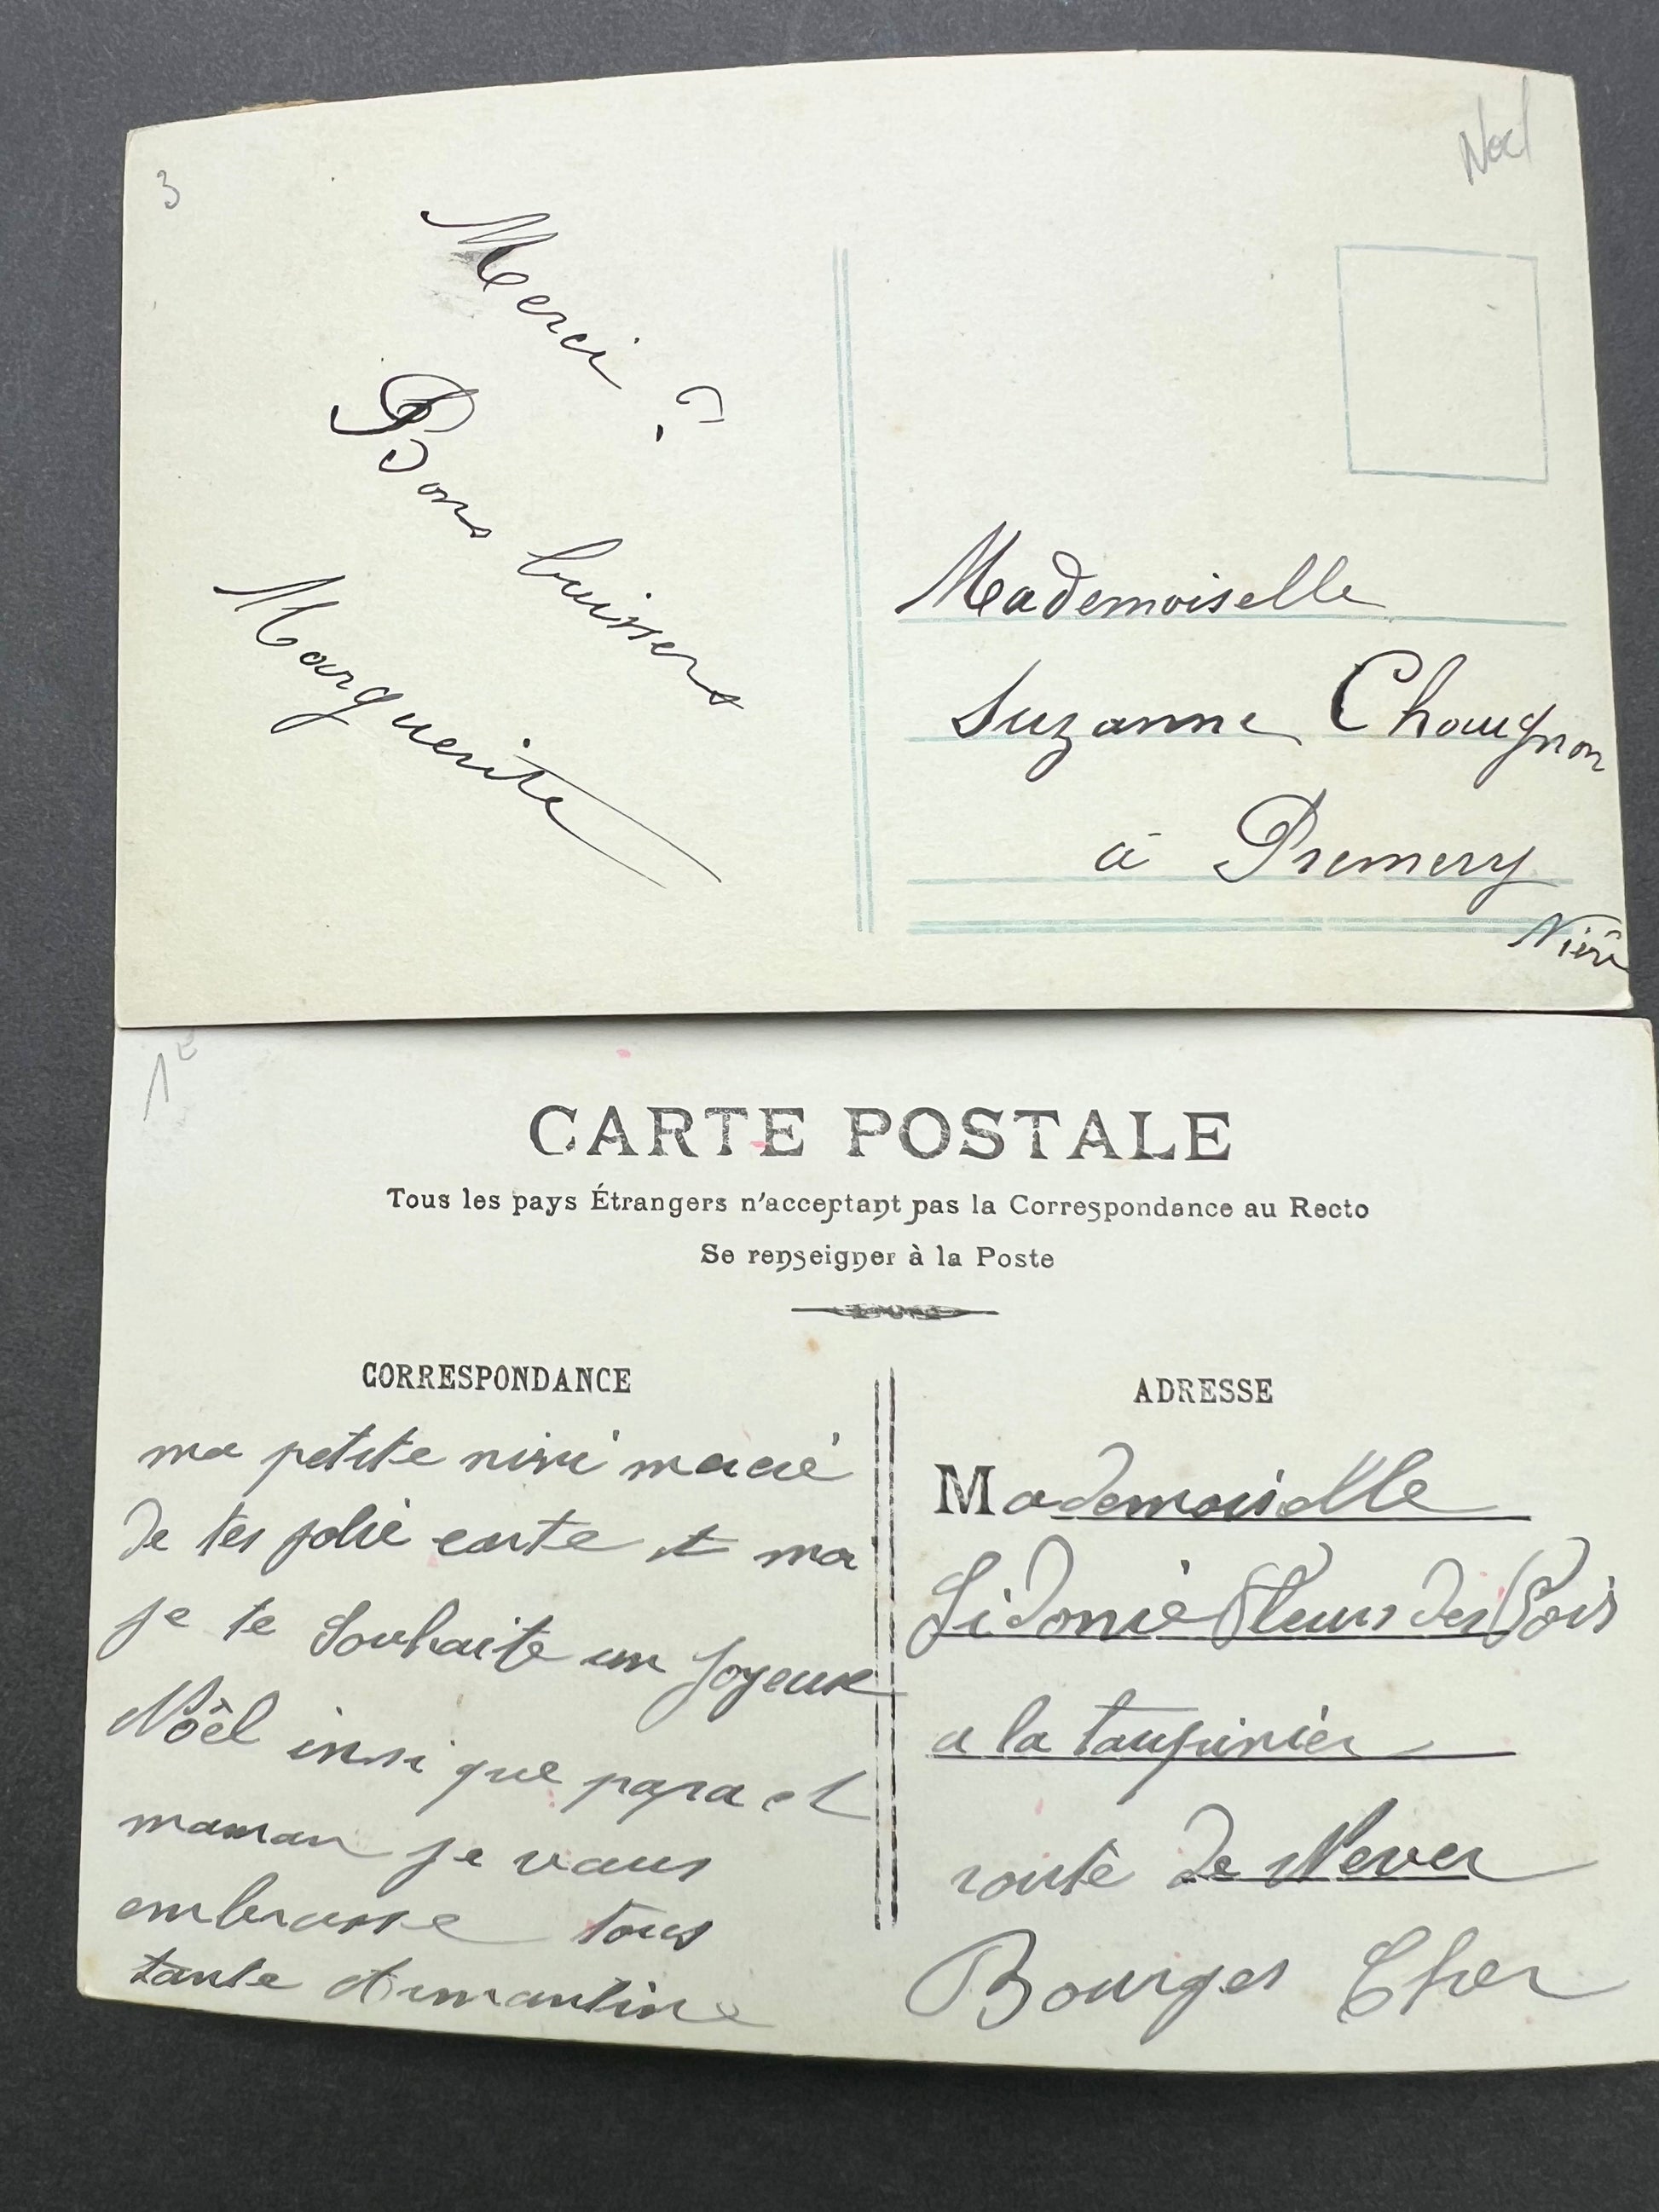 3
Noel
Merci ?
Bons baisers
Marguerite
Mademoiselle
Suzanne Chougnon
à Premery
Nièv
1€
CARTE POSTALE
Tous les pays Étrangers n'acceptant pas la Correspondance au Recto
Se renseigner à la Poste
CORRESPONDANCE
ma petite nini
de tes jolie carte et moi
je te Souhaite un joyeux
Nöel insi que papa et
maman je vous
embrasse tous
tante Amantine
ADRESSE
Mademoiselle
Sidonie Fleurs des Bois
a la taupinier
route de Never
Bourges Cher